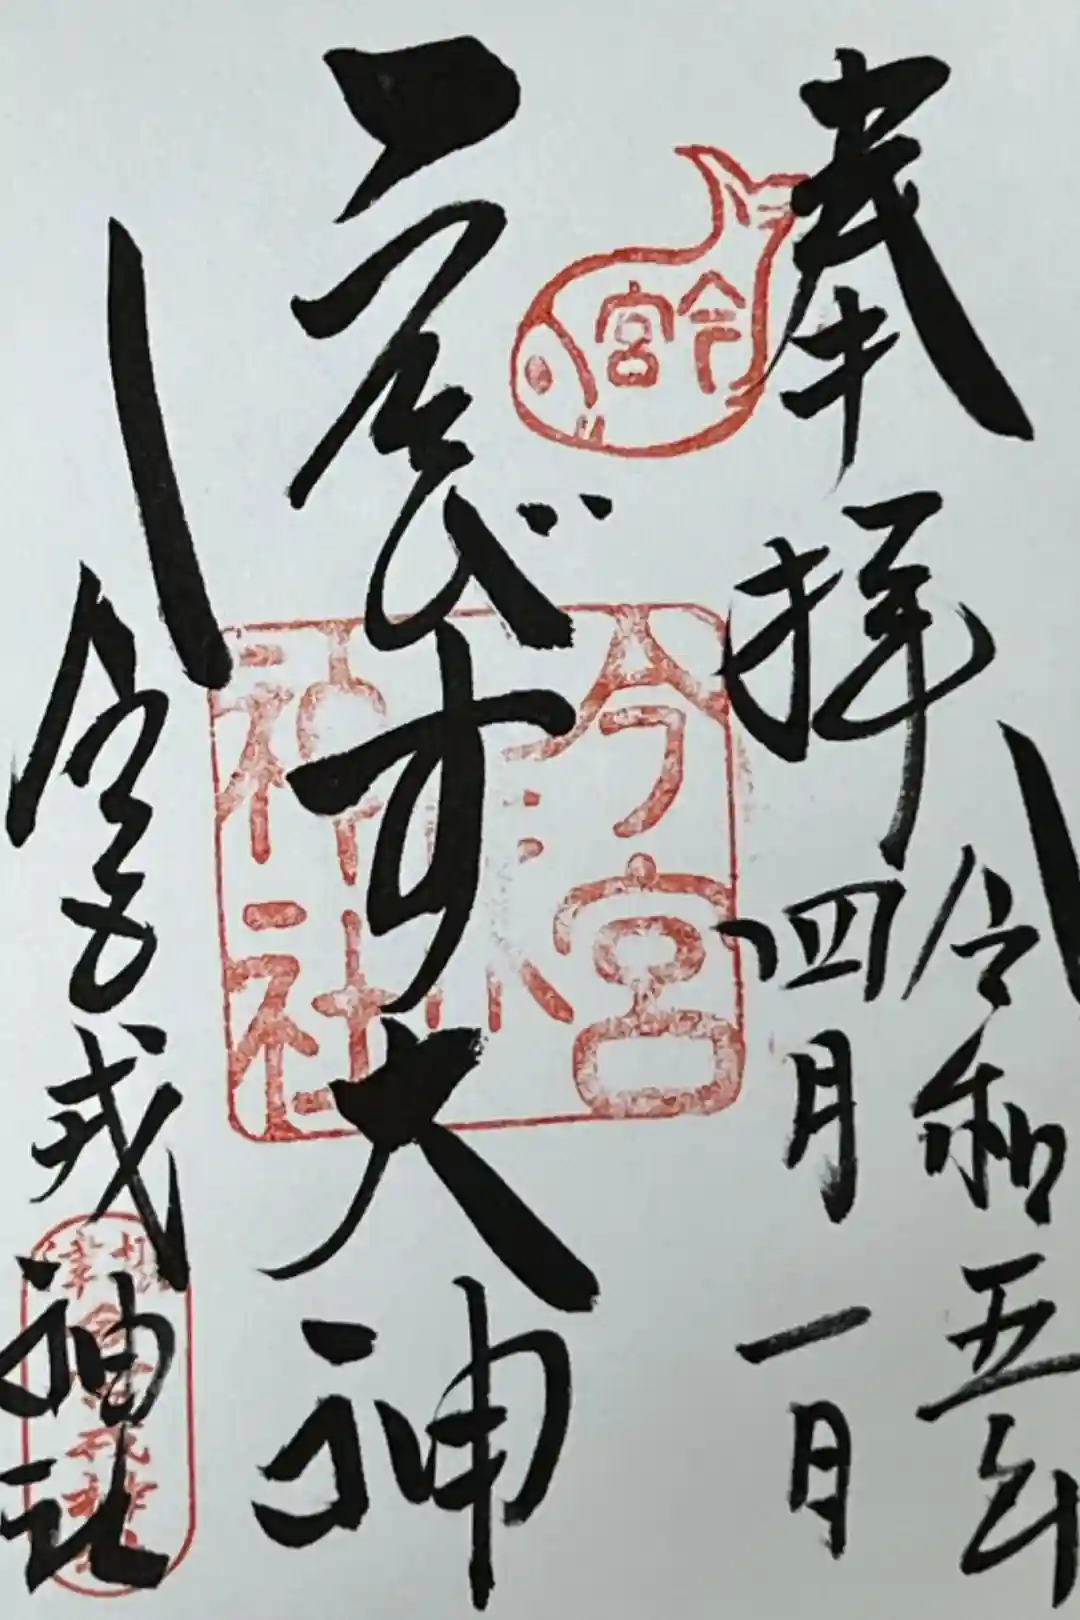 奉拝
令和五年
四月一日
今宮
ゑびす大神
今宮
神社
今宮戎神社